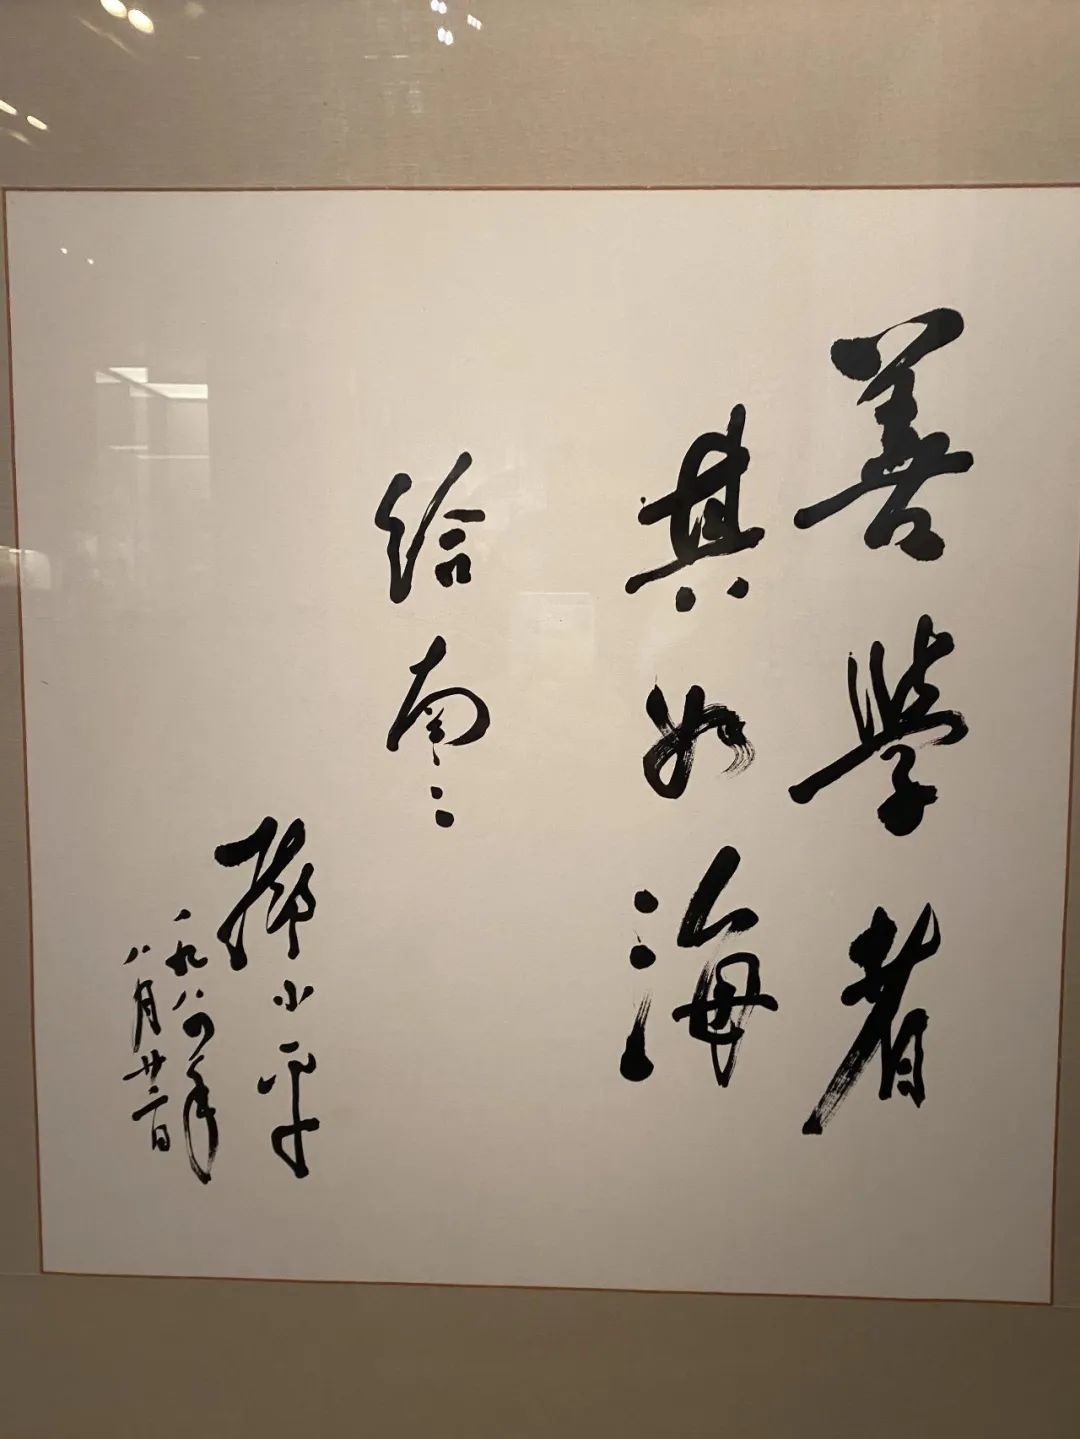 善學者
其如海
给南南
邓小平
一九八四年
八月廿二日